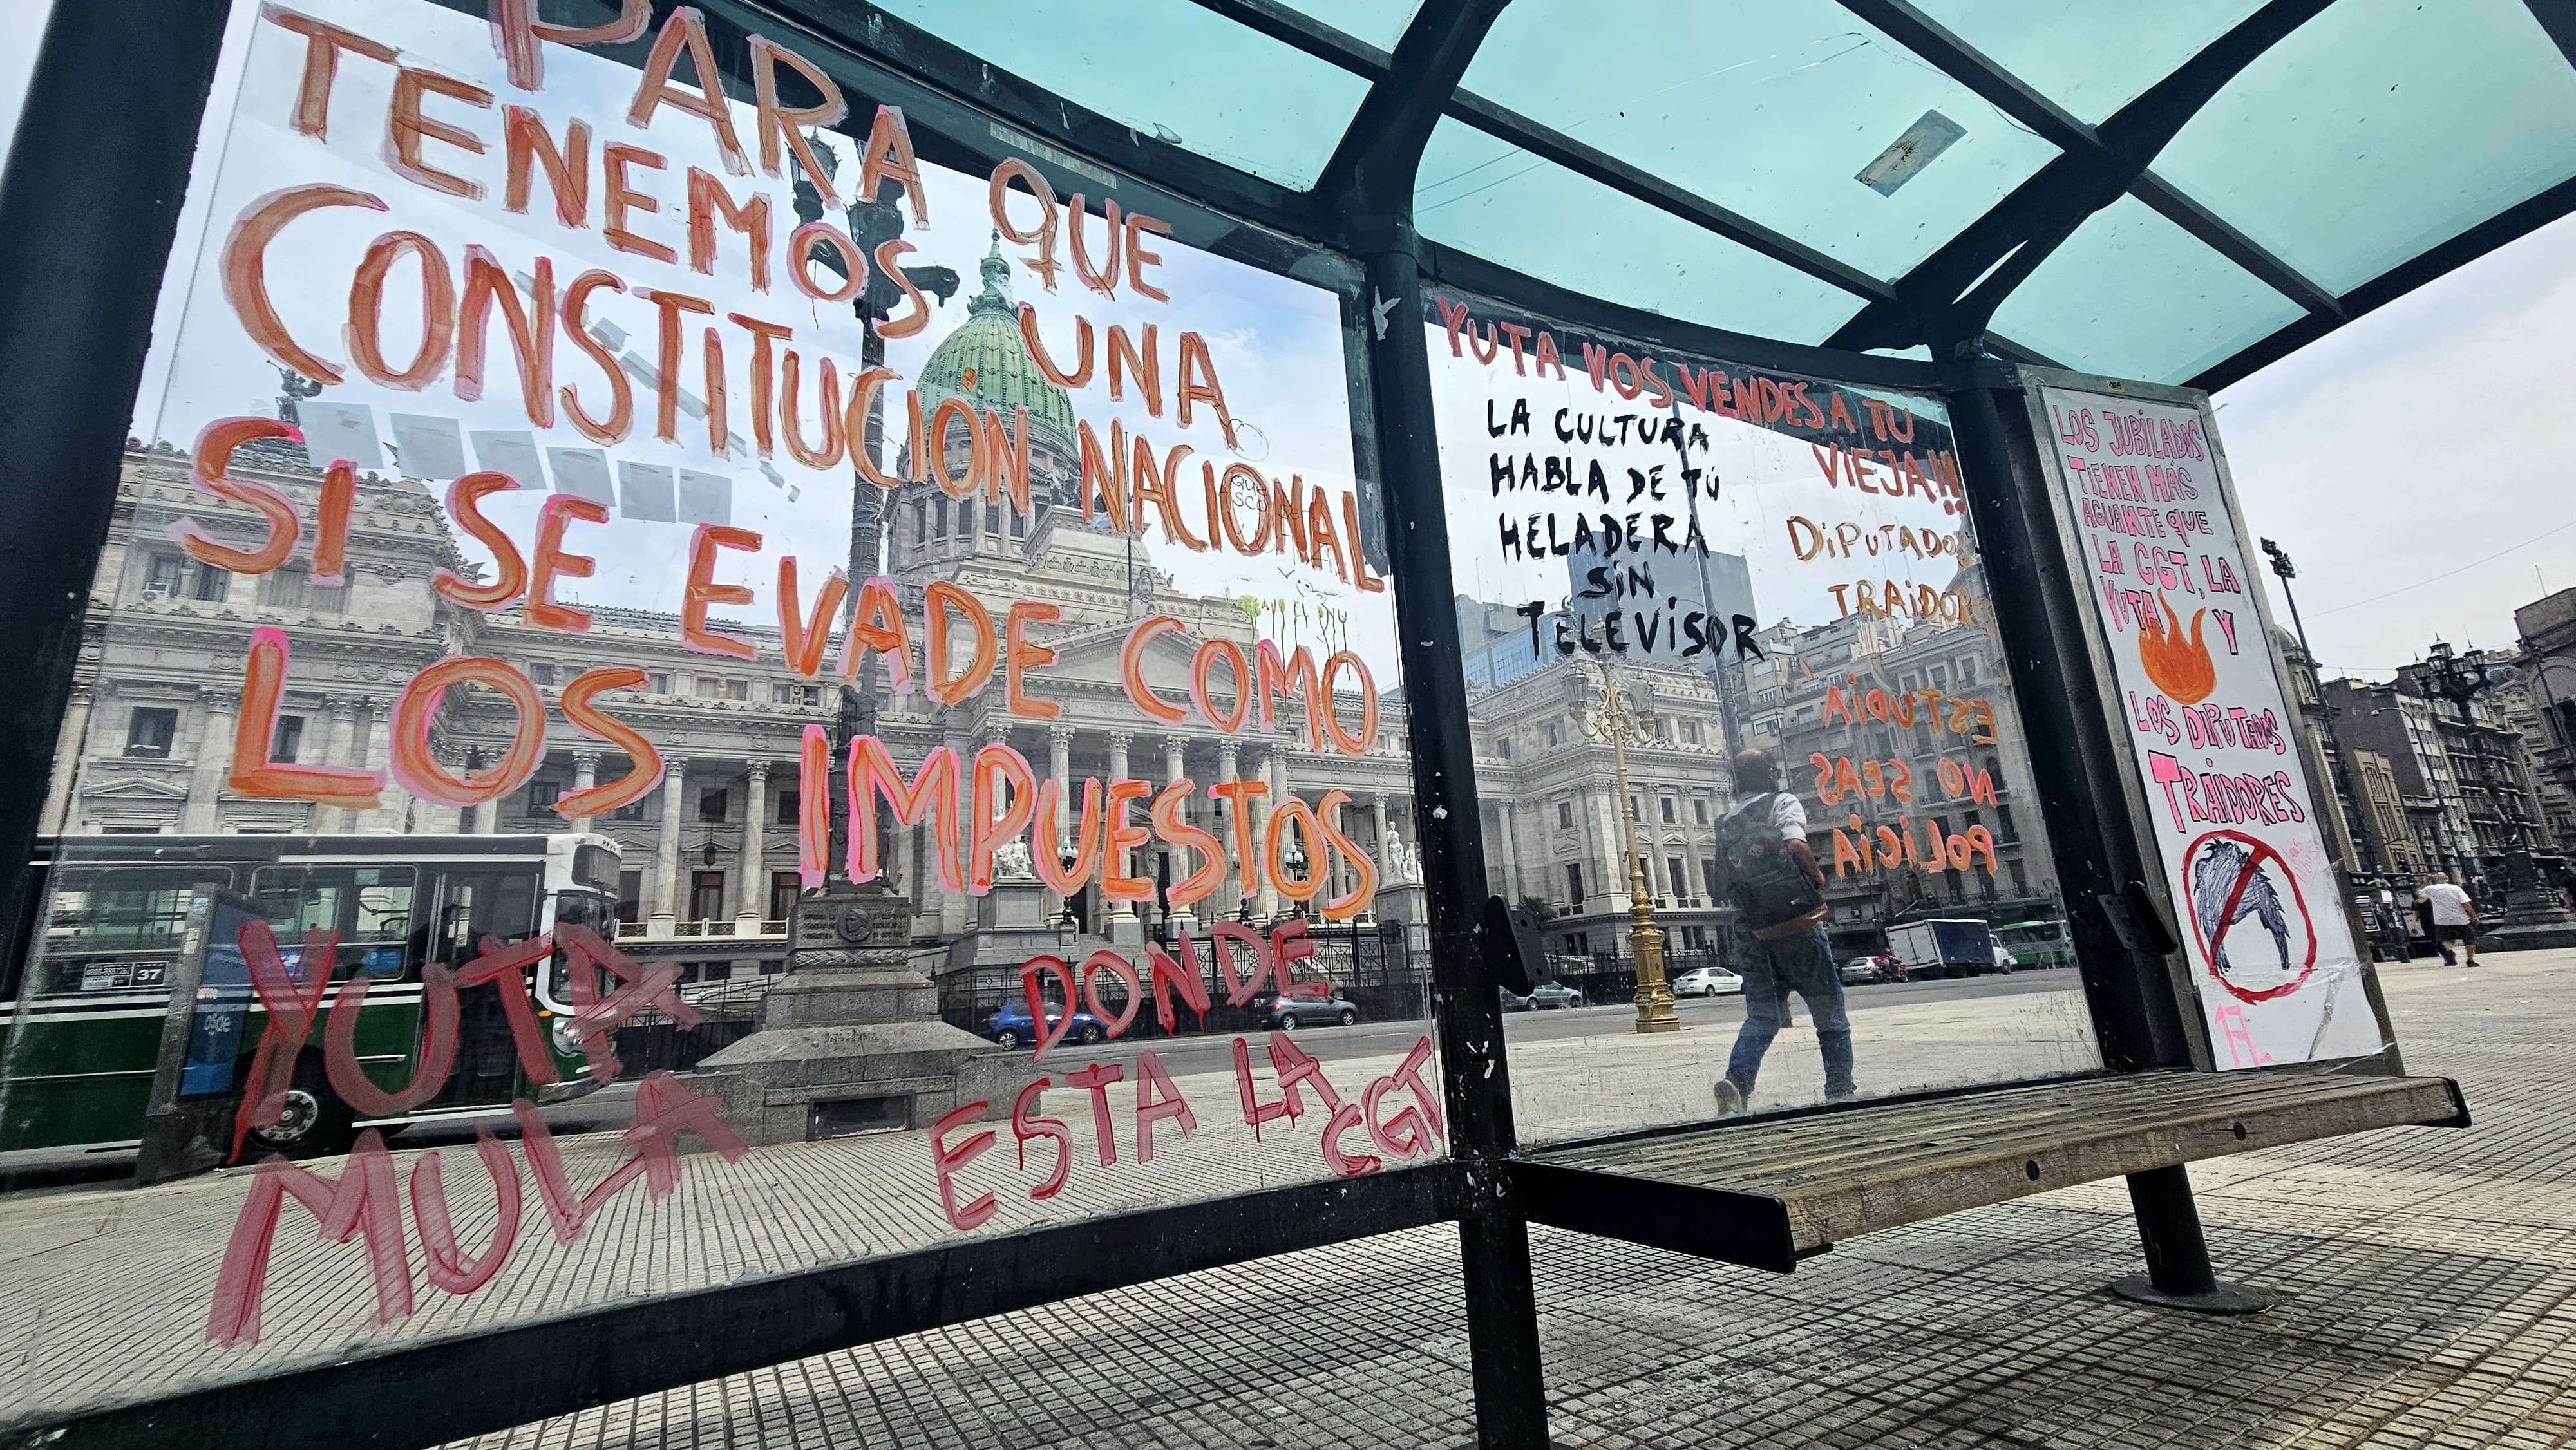 PARA QUE
TENEMOS UNA
CONSTITUCION NACIONAL
SI SE EVADE COMO
LOS IMPUESTOS
YUTA
MULA
DONDE
ESTA LA
CGT
37
YUTA VOS VENDES A TU
VIEJA!!
LA CULTURA
HABLA DE TÚ
HELADERA
SiN
TELEVISOR
DiPUTADOS
TRAiDORES
ESTUDIA
NO SEAS
POLICIA
LOS JUBILADOS
TIENEN MÁS
AGUANTE QUE
LA CGT, LA
YUTA Y
LOS DIPUTADOS
TRAIDORES